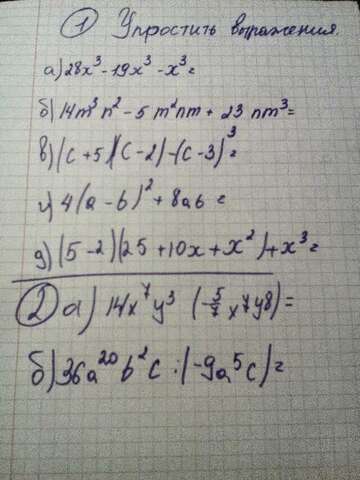 ① Упростить выражения.
а) 28x³ - 19x³ - x³ =
б) 14m³n² - 5m²nm + 23nm³ =
в) (c+5)(c-2) - (c-3)³ =
г) 4(a-b)² + 8ab =
д) (5-2)(25+10x+x²) + x³ =
② а) 14x⁷y³ (-5/7 x⁷y8) =
б) 36a²⁰b²c : (-9a⁵c) =